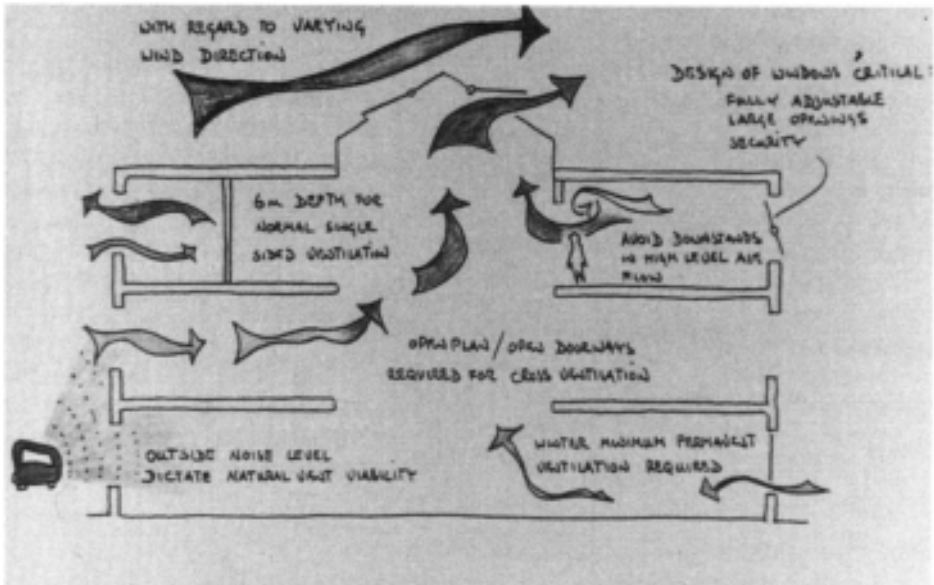 WITH REGARD TO VARYING
WIND DIRECTION
DESIGN OF WINDOWS CRITICAL:
FULLY ADJUSTABLE
LARGE OPENINGS
SECURITY
6m DEPTH FOR
NORMAL SINGLE
SIDED VENTILATION
AVOID DOWNSTANDS
IN HIGH LEVEL AIR
FLOW
OPEN PLAN/OPEN DOORWAYS
REQUIRED FOR CROSS VENTILATION
OUTSIDE NOISE LEVEL
DICTATE NATURAL VENT VIABILITY
WINTER MINIMUM PERMANENT
VENTILATION REQUIRED